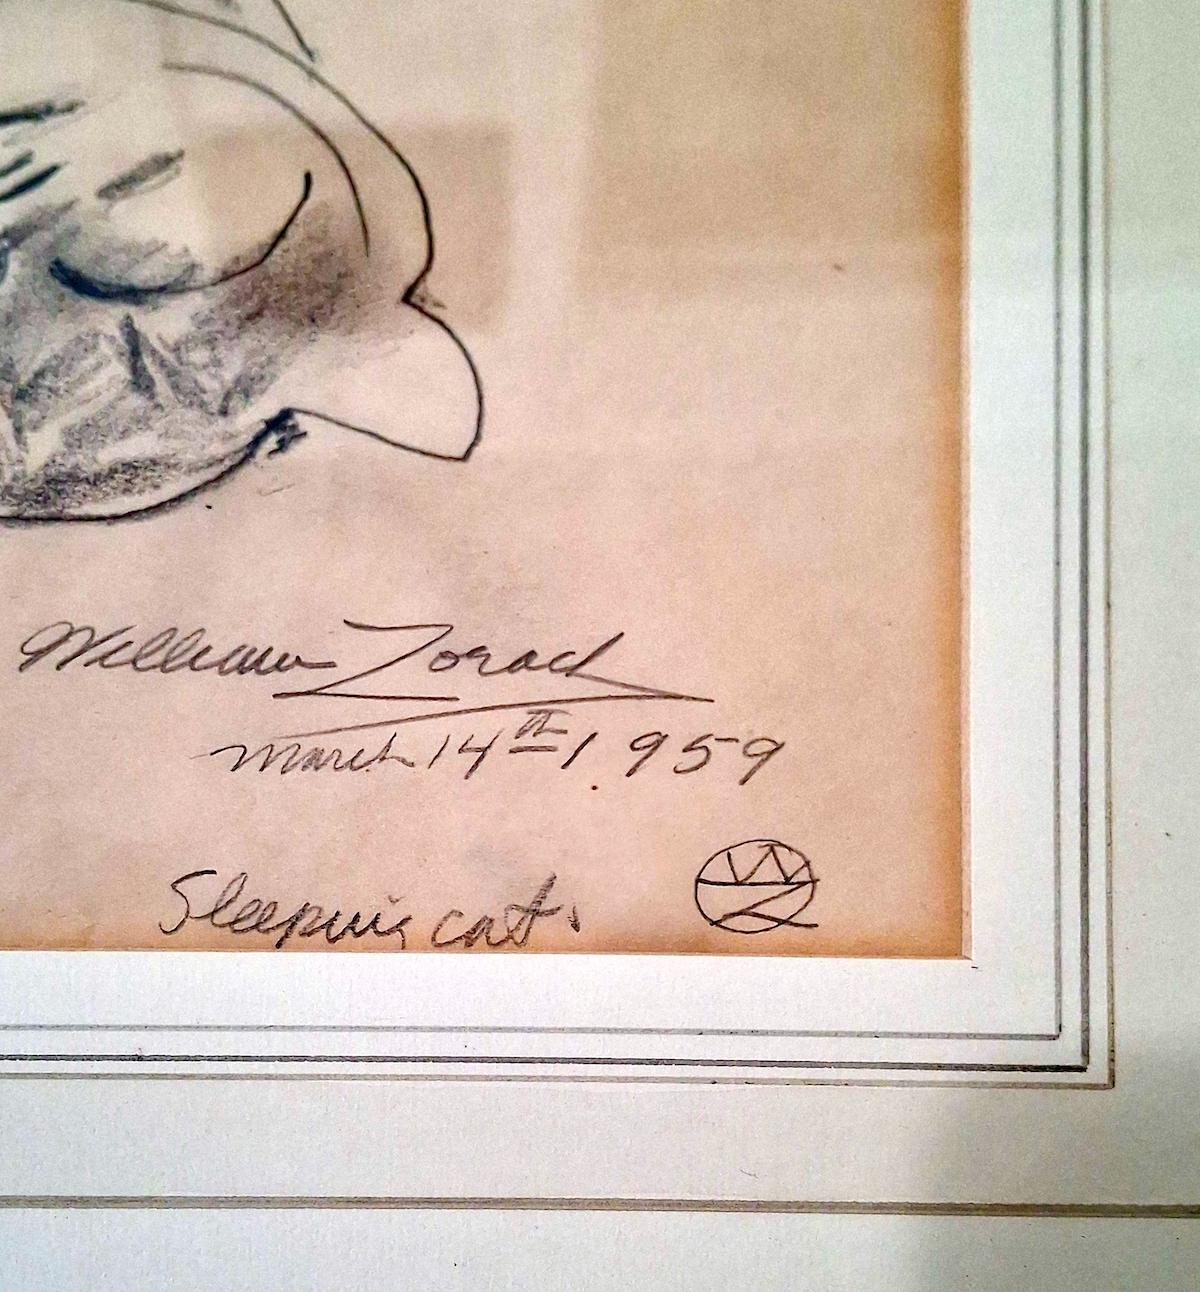 William Zorach
March 14th 1959
Sleeping cat.
WZ